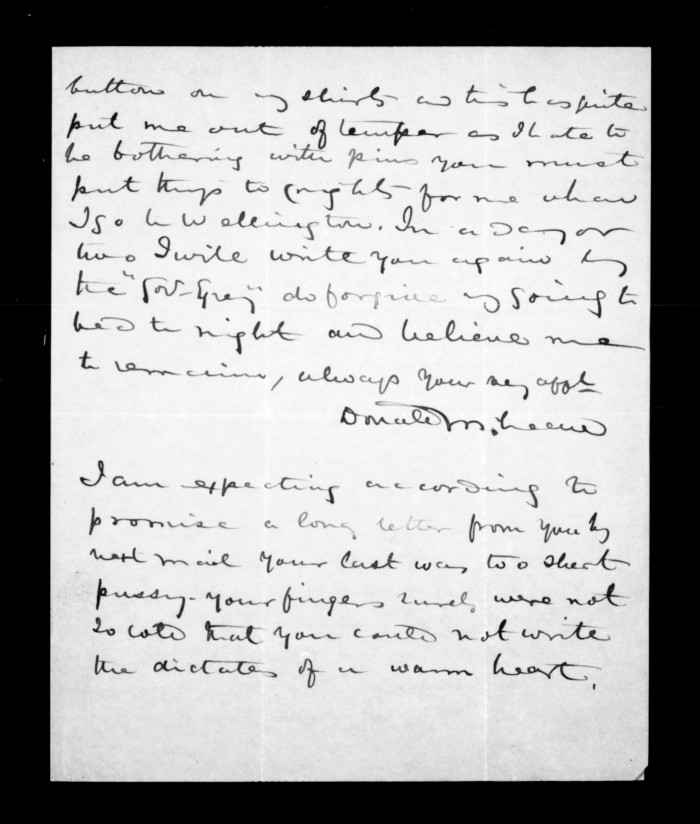 button on my shirts and this has quite
put me out of temper as I hate to
be bothering with pins you must
put things to rights for me when
I go to Wellington. In a day or
two I will write you again by
the "Gov-Grey" do forgive my going to
bed to night and believe me
to remain, always your very affte
Donald McLean
I am expecting according to
promise a long letter from you by
next mail your last was too short
pussy - your fingers surely were not
so cold that you could not write
the dictates of a warm heart.